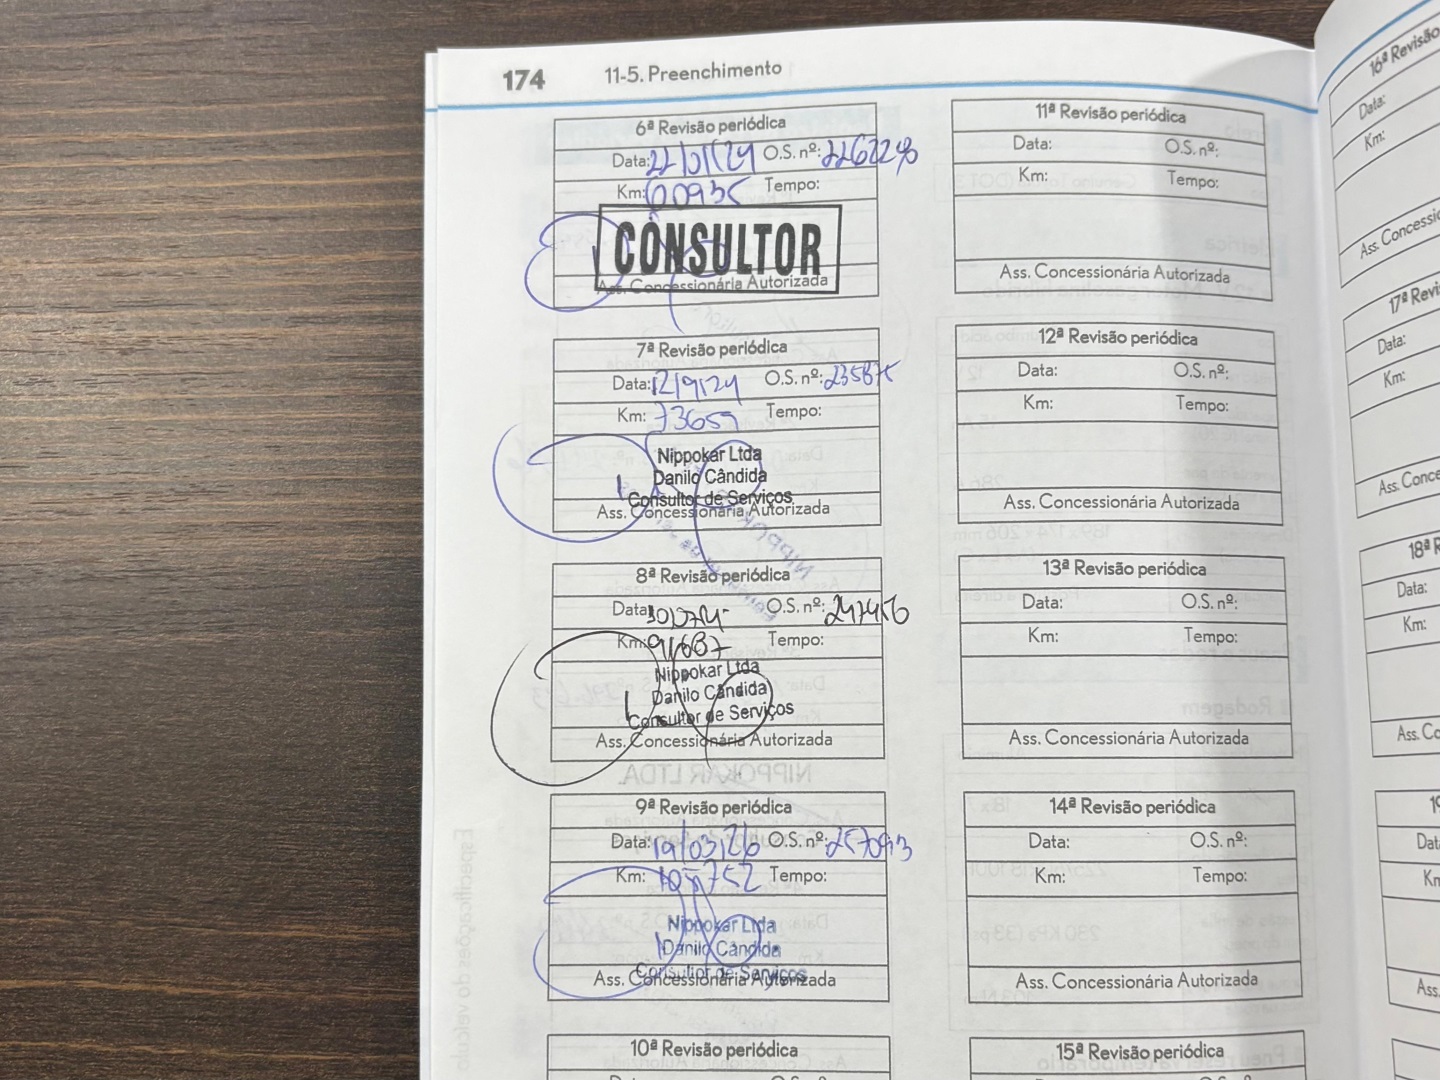 174 11-5. Preenchimento
6ª Revisão periódica
Data: O.S. nº:
Km: 60935 Tempo:
CONSULTOR
Ass. Concessionária Autorizada
7ª Revisão periódica
Data: 12/9/24 O.S. nº: 235875
Km: 73659 Tempo:
Nippokar Ltda
Danilo Cândida
Consultor de Serviços
Ass. Concessionária Autorizada
8ª Revisão periódica
Data: O.S. nº: 247456
Km: 91687 Tempo:
Nippokar Ltda
Danilo Cândida
Consultor de Serviços
Ass. Concessionária Autorizada
9ª Revisão periódica
Data: 19/03/26 O.S. nº: 257093
Km: Tempo:
Nippokar Ltda
Danilo Cândida
Consultor de Serviços
Ass. Concessionária Autorizada
10ª Revisão periódica
11ª Revisão periódica
Data: O.S. nº:
Km: Tempo:
Ass. Concessionária Autorizada
12ª Revisão periódica
Data: O.S. nº:
Km: Tempo:
Ass. Concessionária Autorizada
13ª Revisão periódica
Data: O.S. nº:
Km: Tempo:
Ass. Concessionária Autorizada
14ª Revisão periódica
Data: O.S. nº:
Km: Tempo:
Ass. Concessionária Autorizada
15ª Revisão periódica
16ª Revisão
Data:
Km:
Ass. Concessi
17ª Revi
Data:
Km:
Ass. Conce
18ª R
Data:
Km:
Ass. Co
Data
Km
Ass.